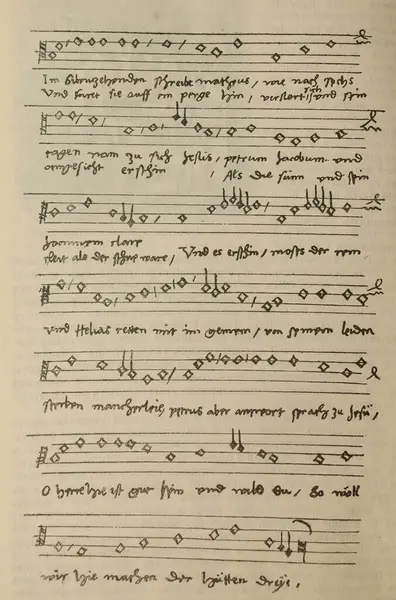 Im sibenzehenden schreibt matheus, wie nach sechs
Und furet sie auff ein perge hin, verklert sich und sein
tagen nam zu sich Jesus, petrum Jacobum und
angesicht erschin, Als die sunn und sein
Joannem clare
cleit als der schne ware, Und es erschin, moses der rein
und Helias retten mit im gemein, von seinem leiden
sterben mancherleis petrus aber antwort sprach zu Jesu,
O herre hie ist gut sein und wild du, So wöll
wir hie machen der hütten dreÿe,